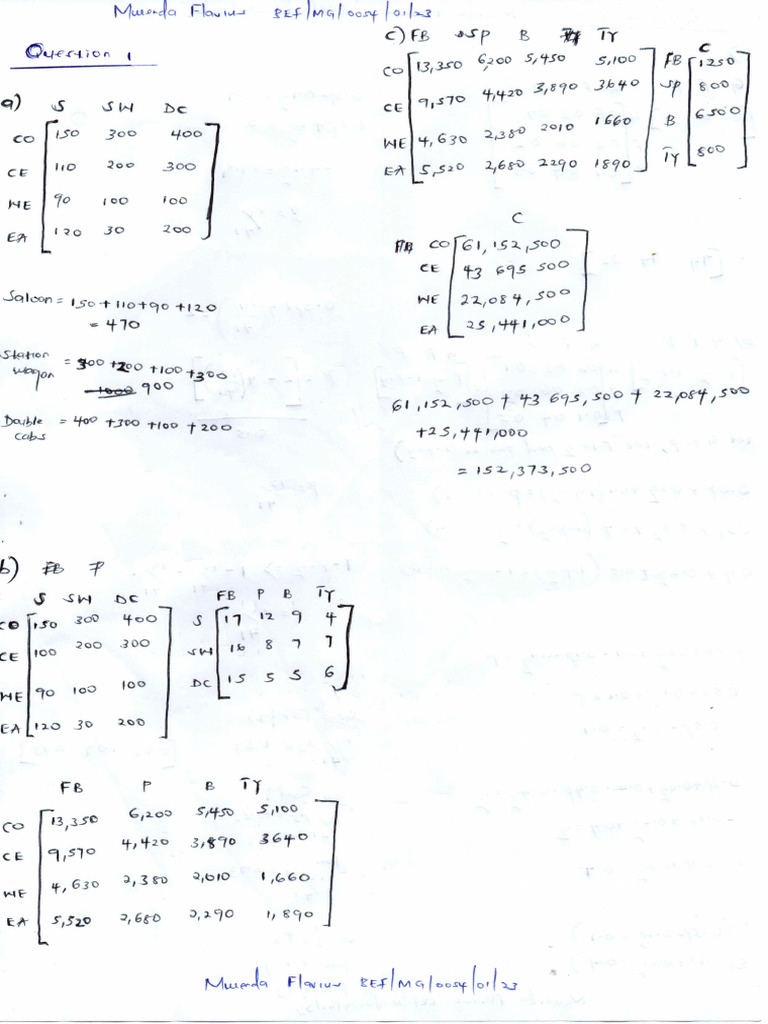 Mwenda Flavius BEF/MG/0054/01/23
Question 1
a) S SW DC
CO 150 300 400
CE 110 200 300
WE 90 100 100
EA 120 30 200
Saloon = 150 + 110 + 90 + 120
= 470
Station = 300 + 200 + 100 + 300
wagon 900
Double = 400 + 300 + 100 + 200
cabs
b) FB P
S SW DC
CO 150 300 400
CE 100 200 300
WE 90 100 100
EA 120 30 200
FB P B TY
S 17 12 9 4
SW 16 8 7 7
DC 15 5 5 6
FB P B TY
CO 13,350 6,200 5,450 5,100
CE 9,570 4,420 3,890 3640
WE 4,630 2,380 2,010 1,660
EA 5,520 2,680 2,290 1,890
c) FB SP B TY
CO 13,350 6,200 5,450 5,100
CE 9,570 4,420 3,890 3640
WE 4,630 2,380 2010 1660
EA 5,520 2,680 2290 1890
C
FB 1250
SP 800
B 6500
TY 800
C
CO 61,152,500
CE 43 695 500
WE 22,084,500
EA 25,441,000
61,152,500 + 43 695,500 + 22,084,500
+25,441,000
= 152,373,500
Mwenda Flavius BEF/MG/0054/01/23